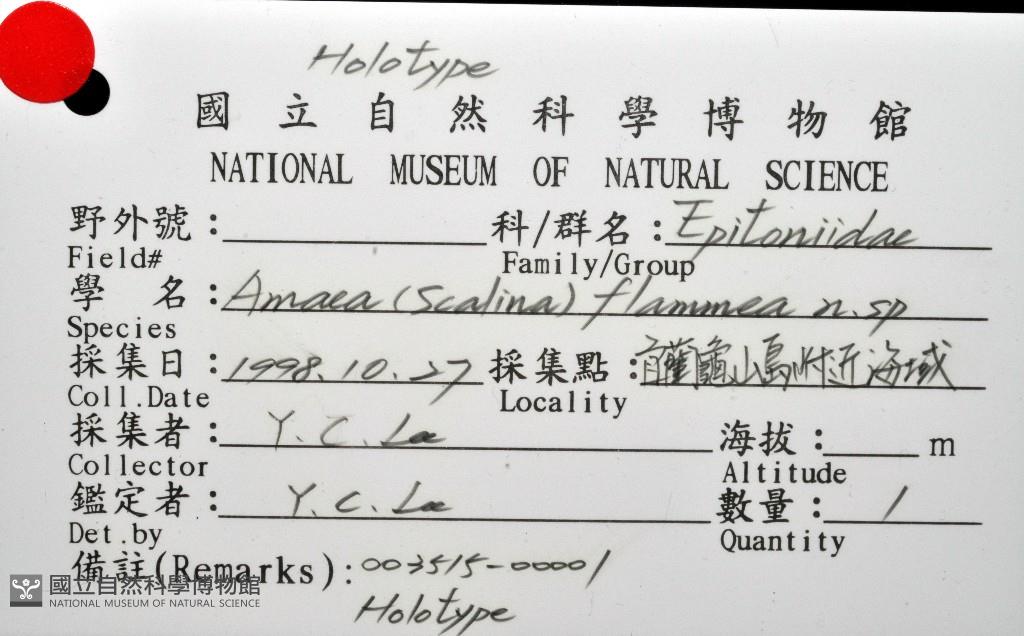 Holotype
國立自然科學博物館
NATIONAL MUSEUM OF NATURAL SCIENCE
野外號: 科/群名: Epitoniidae
Field# Family/Group
學名: Amaea (Scalina) flammea n.sp
Species
採集日: 1998.10.27 採集點: 龜山島附近海域
Coll.Date Locality
採集者: Y.C. Lee 海拔: m
Collector Altitude
鑑定者: Y.C. Lee 數量: 1
Det.by Quantity
備註(Remarks): 003515-00001
Holotype
國立自然科學博物館
NATIONAL MUSEUM OF NATURAL SCIENCE